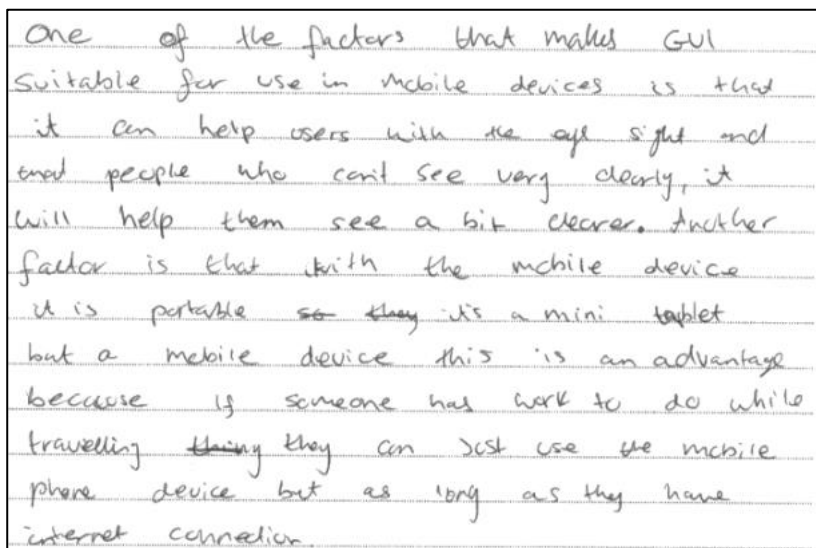 One of the factors that makes GUI
suitable for use in mobile devices is that
it can help users with the eye sight and
that people who can't see very clearly, it
will help them see a bit clearer. Another
factor is that with the mobile device
it is portable so they it's a mini tablet
but a mobile device this is an advantage
because if someone has work to do while
travelling they can just use the mobile
phone device but as long as they have
internet connection.